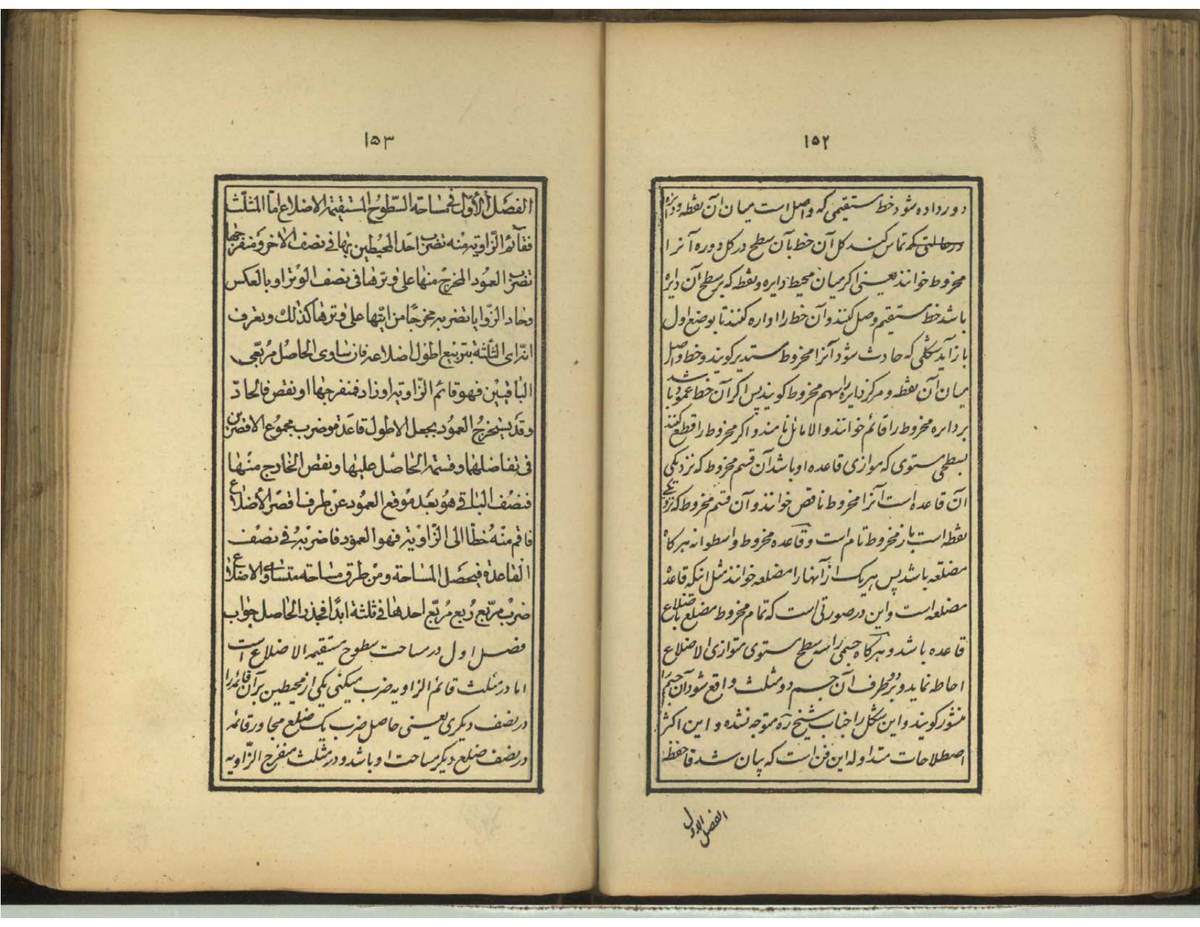 ١٥٢
دور داده شود خط مستقیمی که واصل است میان آن نقطه و دایره
در حالتیکه تماس کند کل آن خط بآن سطح در کل دوره آنرا
مخروط خوانند یعنی اکر میان محیط دایره و نقطه که بر سطح آن دایره
باشد خط مستقیم وصل کنند و آن خط را اداره کنند تا بوضع اول
باز آید شکلی که حادث شود آنرا مخروط مستدیر کویند و خط واصل
میان آن نقطه و مرکز دایره را سهم مخروط کویند پس اکر آن خط عمود باشد
بر دایره مخروط را قائم خوانند والا مائل نامند و اکر مخروط را قطع کنند
بسطحی مستوی که موازی قاعده او باشد آن قسم مخروط که نزدیکی
آن قاعده است آنرا مخروط ناقص خوانند و آن قسم مخروط که نزدیکی
نقطه است باز مخروط تام است و قاعده مخروط و اسطوانه هرکاه
مضلعه باشد پس هریک از آنها را مضلعه خوانند مثل انکه قاعدهٔ
مضلعه است و این در صورتی است که تمام مخروط مضلع باضلاع
قاعده باشد و هرکاه جسمی را سه سطح مستوی متوازی الاضلاع
احاطه نماید و بر دو طرف آن جسم دو مثلث واقع شود آن جسم را
منشور کویند و این شکل را جناب شیخ ره متوجه نشده و این اکثر
اصطلاحات متداوله این فن است که بیان شد فاحفظه
الفصل الاول
١٥٣
الفصل الاول فی مساحة السطوح المستقیمة الاضلاع اما المثلث
فقائم الزاویة منه تضرب احد المحیطین بها فی نصف الاخر و منفرجها
تضرب العمود المخرج منها علی وترها فی نصف الوتر او بالعکس
و حاد الزوایا تضربه مخرجا من ایتها علی وترها کذلک و یعرف
انه ای الثلثة بتربیع اطول اضلاعه فان ساوی الحاصل مربعی
الباقیین فهو قائم الزاویة او زاد فمنفرجها او نقص فالحاد
و قد یستخرج العمود بجعل الاطول قاعدة و ضرب مجموع الاقصرین
فی تفاضلهما و قسمة الحاصل علیها و نقص الخارج منها
فنصف الباقی هو بعد موقع العمود عن طرف اقصر الأضلاع
فاقم منه خطا الی الزاویة فهو العمود فاضربه فی نصف
القاعدة فیحصل المساحة و من طرق مساحة متساوی الاضلاع
ضرب مربع ربع مربع احدها فی ثلثة ابدا فجذر الحاصل جواب
فصل اول در مساحت سطوح مستقیمة الاضلاع است
اما در مثلث قائم الزاویه ضرب میکنی یکی از محیطین بر آن قائمه را
در نصف دیکری یعنی حاصل ضرب یک ضلع مجاور قائمه
در نصف ضلع دیکر مساحت او باشد و در مثلث منفرج الزاویه